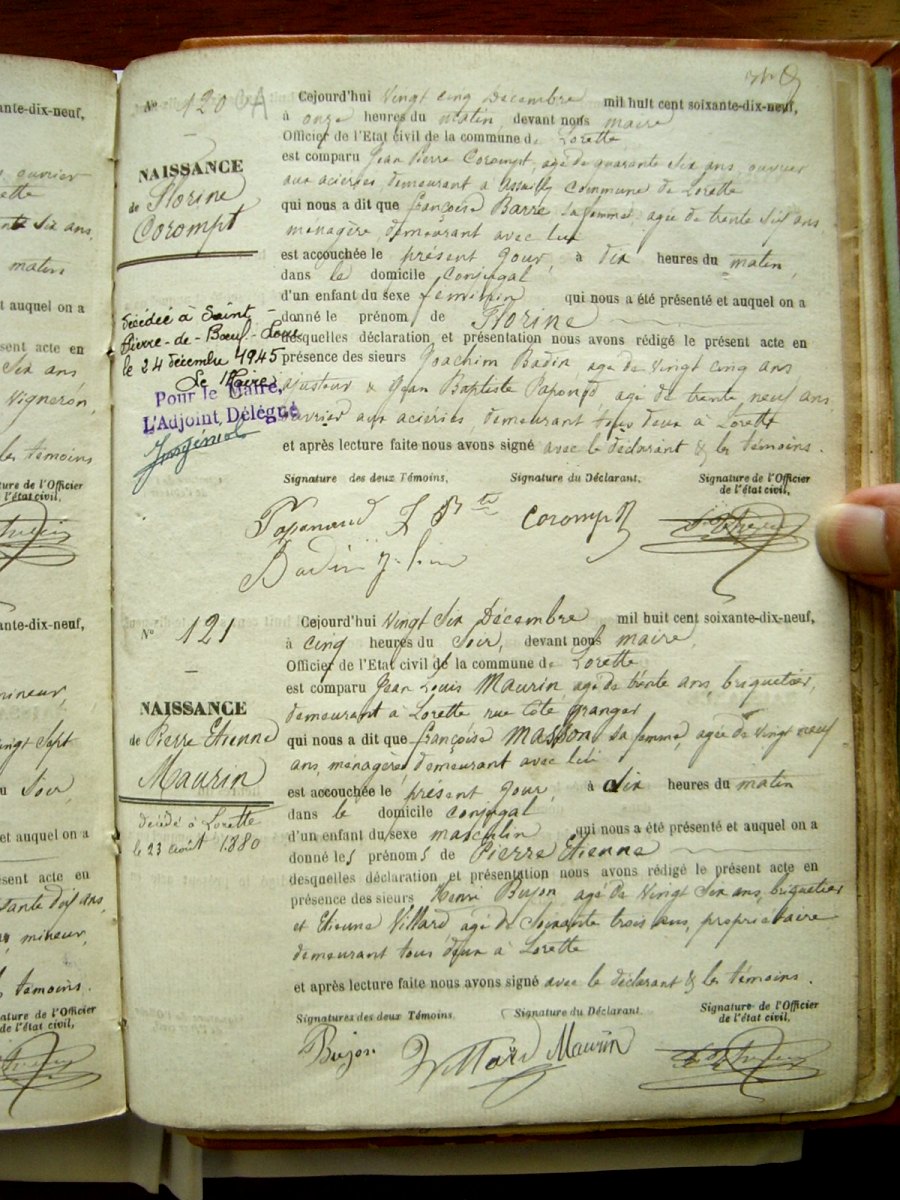 ante-dix-neuf,
ouvrier
ette
Six ans,
matin
t auquel on a
sent acte en
Six ans,
Vigneron,
les témoins
ture de l'Officier
l'état civil,
ante-dix-neuf,
mineur,
ingt Sept
u Soir,
et auquel on a
sent acte en
ans,
mineur,
témoins.
ature de l'Officier
de l'état civil,
N° 120
NAISSANCE
de Florine
Corompt
Décédée à Saint-
Pierre-de-Bœuf-Loire
le 24 décembre 1945
Le Maire
Pour le Maire,
L'Adjoint Délégué
Cejourd'hui Vingt cinq Décembre mil huit cent soixante-dix-neuf,
à onze heures du matin devant nous maire
Officier de l'Etat civil de la commune de Lorette
est comparu Jean Pierre Corompt, agé de quarante Six ans, ouvrier
aux acieries, demeurant à Assailly Commune de Lorette
qui nous a dit que françoise Barre Sa femme, agée de trente Six ans
ménagère, demeurant avec lui
est accouchée le présent Jour, à dix heures du matin,
dans le domicile Conjugal
d'un enfant du sexe feminin qui nous a été présenté et auquel on a
donné le prénom de Florine
desquelles déclaration et présentation nous avons rédigé le présent acte en
présence des sieurs Joachim Badin, agé de Vingt cinq ans
ajusteur & Jean Baptiste Paponod agé de trente neuf ans
ouvrier aux acieries, demeurant tous deux à Lorette
et après lecture faite nous avons signé avec le déclarant & les témoins.
Signature des deux Témoins, Signature du Déclarant, Signature de l'Officier
de l'état civil,
J Bte Corompt
Badin
N° 121
NAISSANCE
de Pierre Etienne
Maurin
décédé à Lorette
le 23 août 1880
Cejourd'hui Vingt Six Décembre mil huit cent soixante-dix-neuf,
à cinq heures du Soir, devant nous maire
Officier de l'Etat civil de la commune de Lorette
est comparu Jean Louis Maurin, agé de trente ans, briquetier,
demeurant à Lorette rue Côte Granger
qui nous a dit que françoise Masson Sa femme, agée de Vingt neuf
ans, ménagère, demeurant avec lui
est accouchée le présent Jour, à dix heures du matin
dans le domicile Conjugal
d'un enfant du sexe masculin qui nous a été présenté et auquel on a
donné les prénoms de Pierre Etienne
desquelles déclaration et présentation nous avons rédigé le présent acte en
présence des sieurs Henri Bujon, agé de Vingt Six ans, briquetier
et Etienne Villard agé de Soixante trois ans, propriétaire
demeurant tous deux à Lorette
et après lecture faite nous avons signé avec le déclarant & les témoins.
Signatures des deux Témoins, Signature du Déclarant, Signature de l'Officier
de l'état civil,
Bujon Villard Maurin